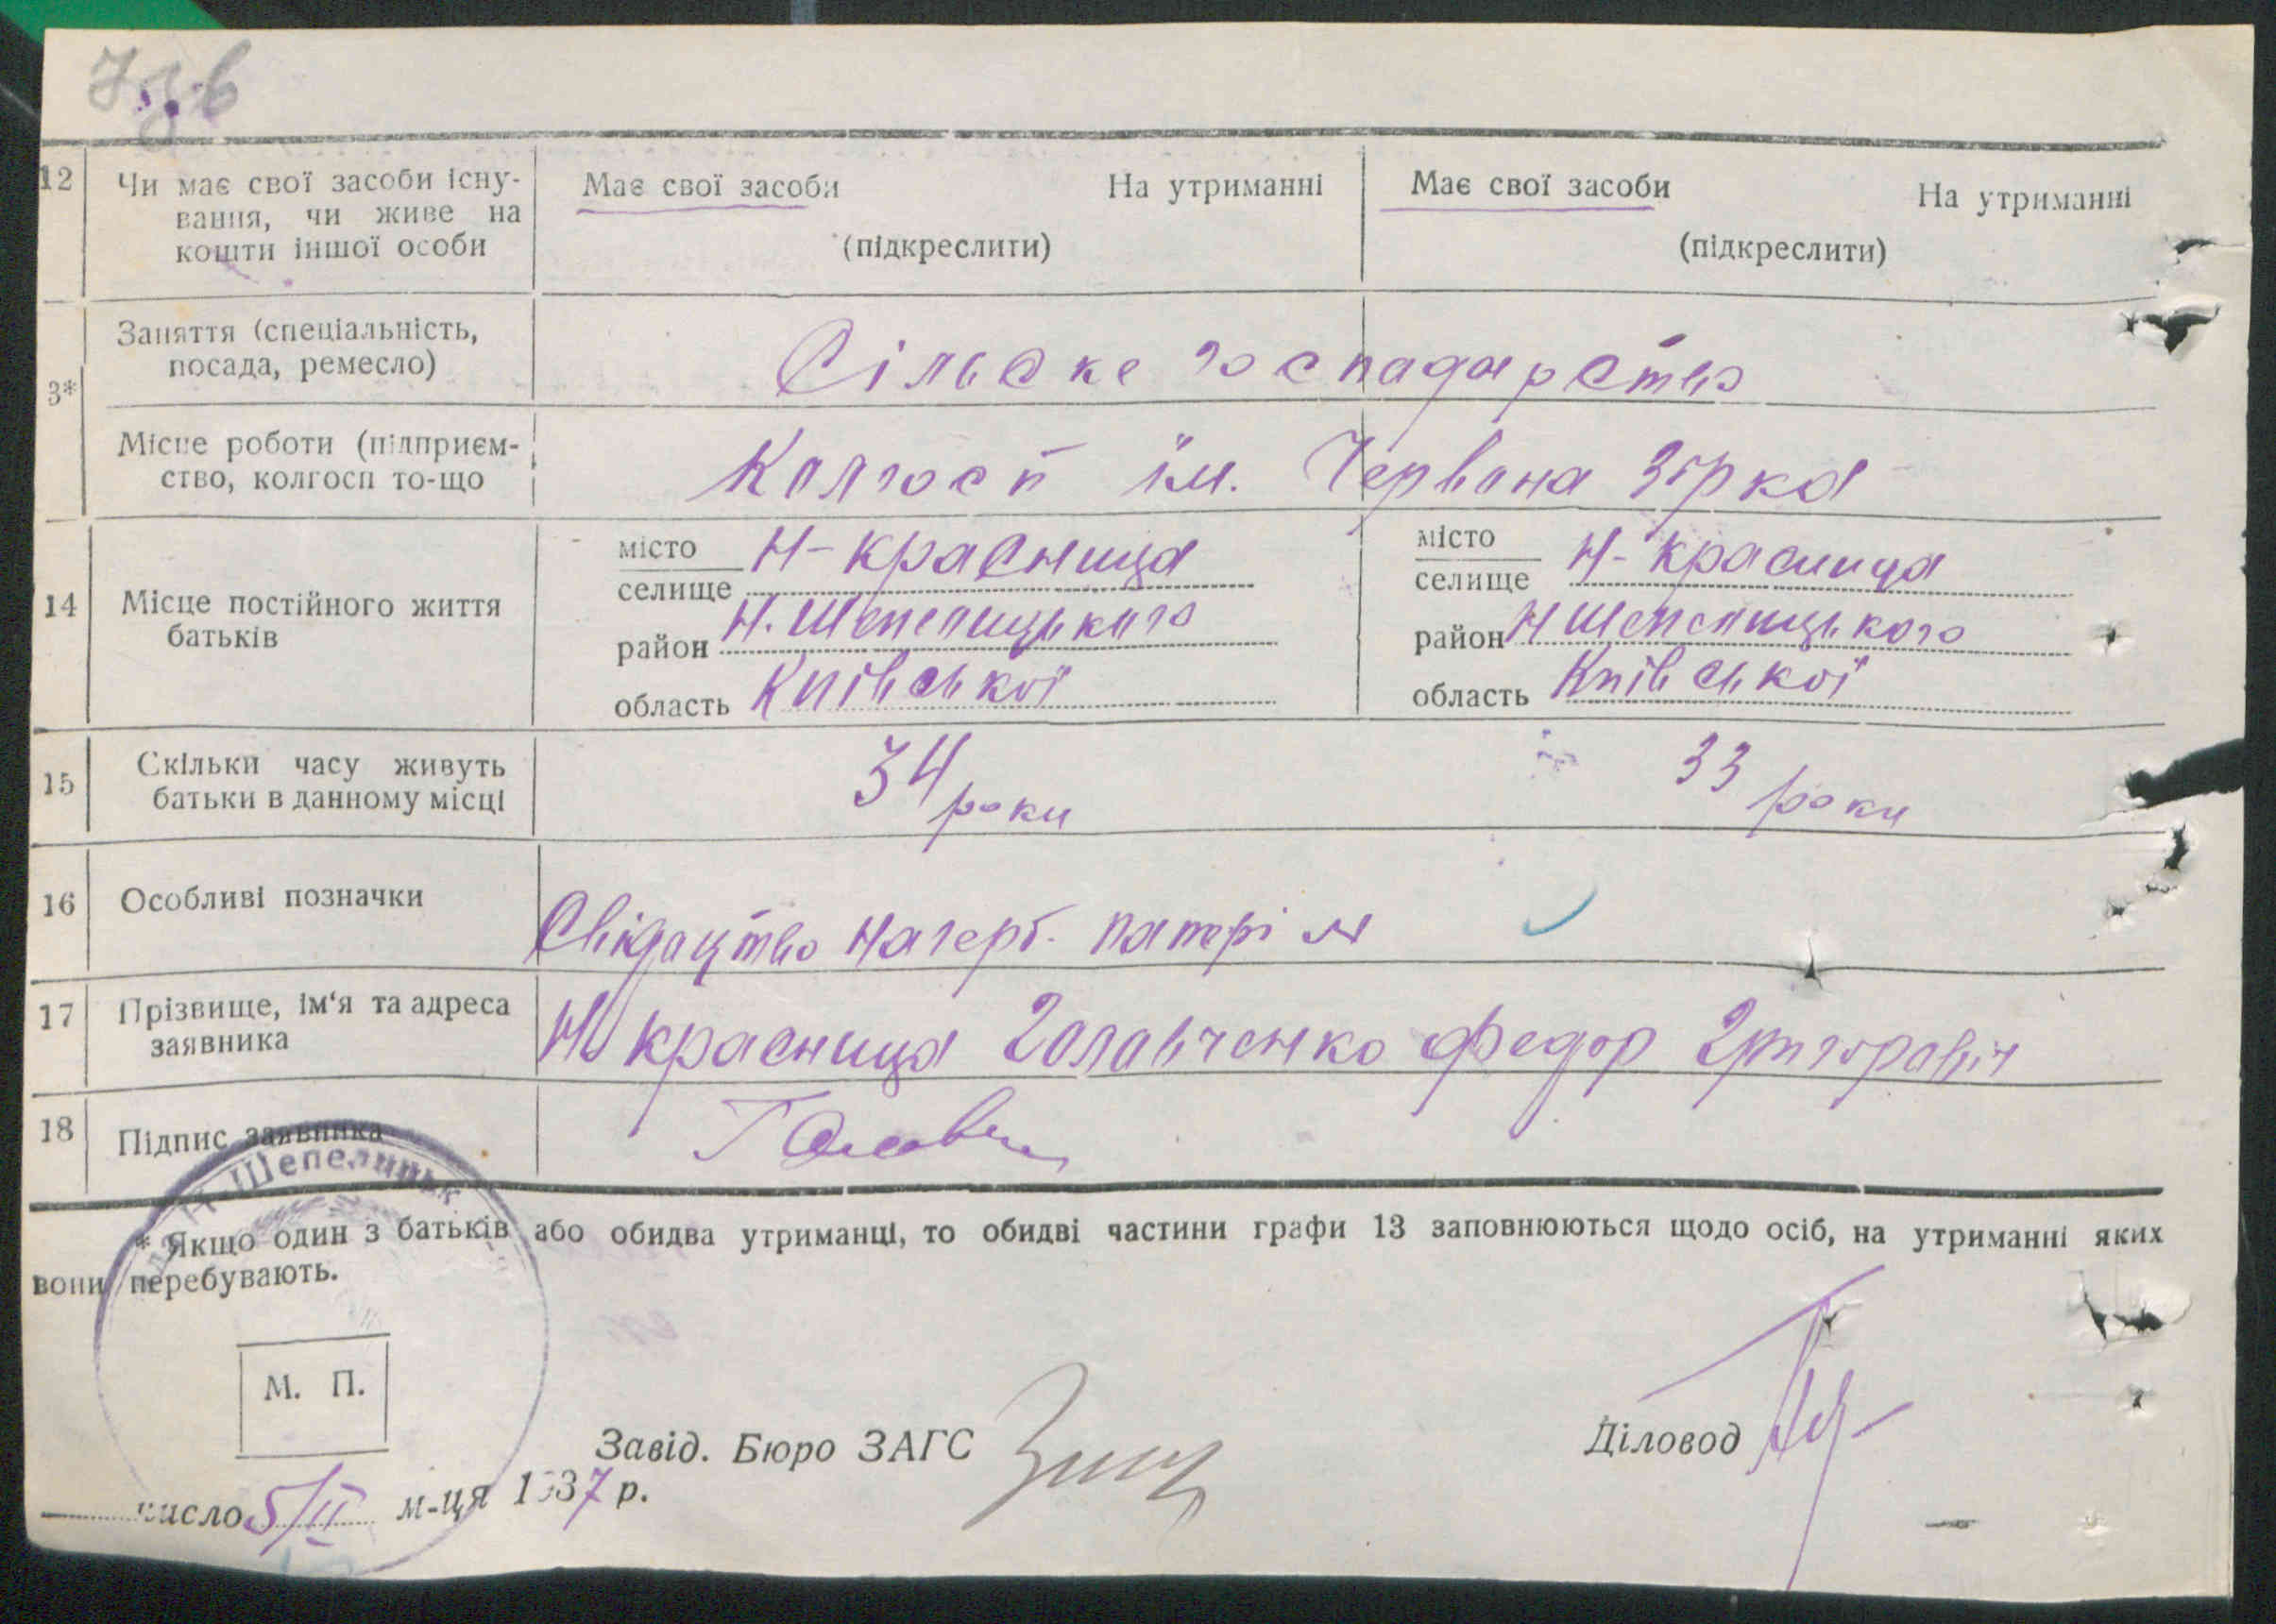 12 Чи має свої засоби існу-
вання, чи живе на
кошти іншої особи
Має свої засоби На утриманні
(підкреслити)
Має свої засоби На утриманні
(підкреслити)
3*
Заняття (спеціальність,
посада, ремесло)
Сільске господарство
Місце роботи (підприєм-
ство, колгосп то-що
Колгосп їм. Червона зірка
14 Місце постійного життя
батьків
місто
селище Н-Красниця
район Н. Шепелицького
область Київської
місто
селище Н-Красниця
район Н Шепелицького
область Київської
15 Скільки часу живуть
батьки в данному місці
34 роки
33 роки
16 Особливі позначки
Свідацтво На герб. патері
17 Прізвище, ім‘я та адреса
заявника
Н Красниця Головченко Федор Григоровіч
18 Підпис заявника
Н.-Шепелицьк
* Якщо один з батьків або обидва утриманці, то обидві частини графи 13 заповнюються щодо осіб, на утриманні яких
вони перебувають.
М. П.
Завід. Бюро ЗАГС
Діловод
число 5/II м-ця 1937 р.